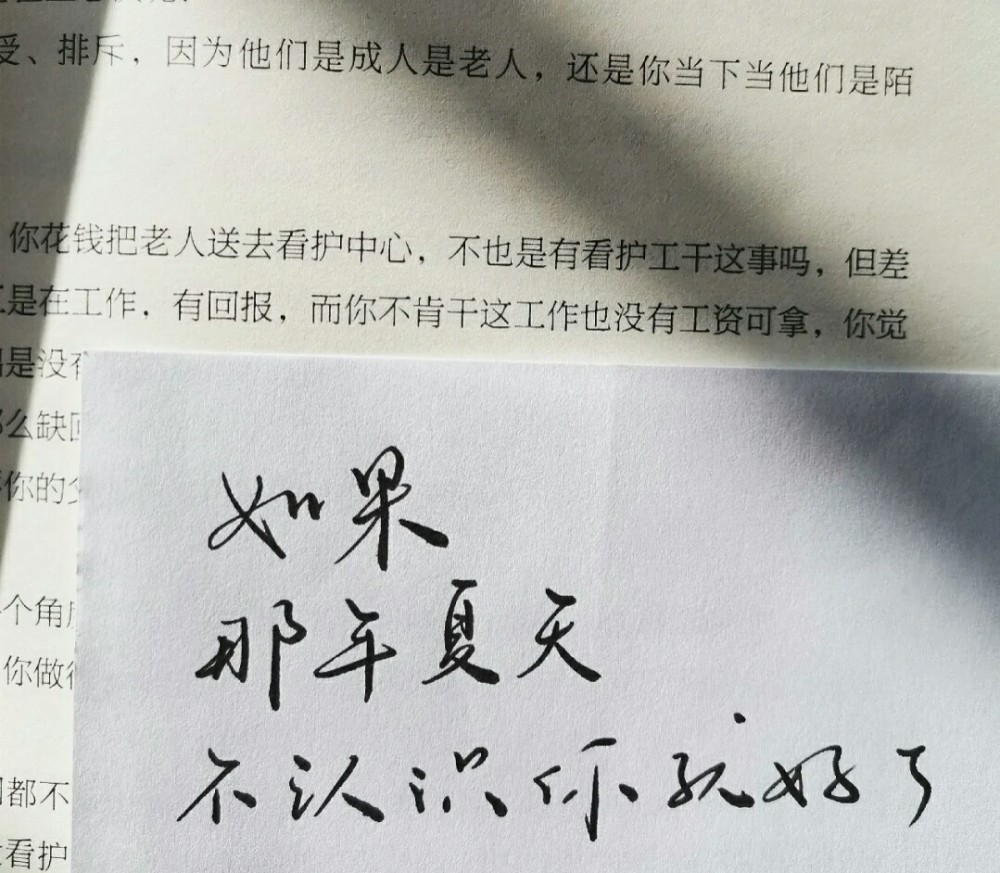 受、排斥，因为他们是成人是老人，还是你当下当他们是陌
你花钱把老人送去看护中心，不也是有看护工干这事吗，但差
工是在工作，有回报，而你不肯干这工作也没有工资可拿，你觉
是没有
么缺回
你的父
如果
个角度
那年夏天
你做得
不认识你就好了
都不
看护